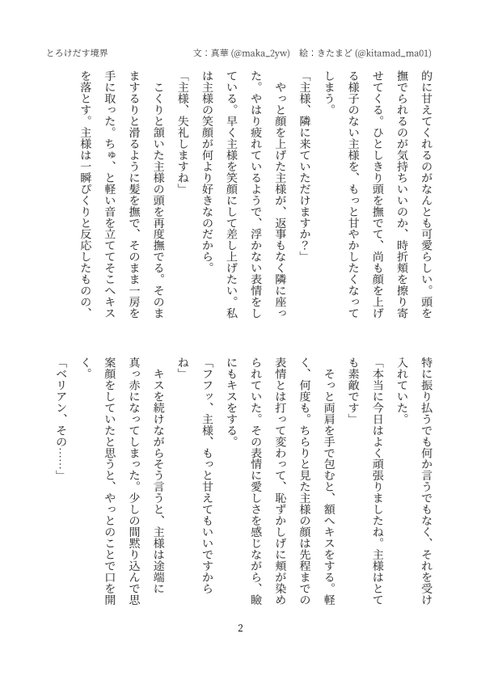 とろけだす境界
文：真華 (@maka_2yw)　絵：きたまど (@kitamad_ma01)
的に甘えてくれるのがなんとも可愛らしい。頭を
撫でられるのが気持ちいいのか、時折頬を擦り寄
せてくる。ひとしきり頭を撫でて、尚も顔を上げ
る様子のない主様を、もっと甘やかしたくなって
しまう。
「主様、隣に来ていただけますか？」
　やっと顔を上げた主様が、返事もなく隣に座っ
た。やはり疲れているようで、浮かない表情をし
ている。早く主様を笑顔にして差し上げたい。私
は主様の笑顔が何より好きなのだから。
「主様、失礼しますね」
　こくりと頷いた主様の頭を再度撫でる。そのま
まするりと滑るように髪を撫で、そのまま一房を
手に取った。ちゅ、と軽い音を立ててそこへキス
を落とす。主様は一瞬ぴくりと反応したものの、
特に振り払うでも何か言うでもなく、それを受け
入れていた。
「本当に今日はよく頑張りましたね。主様はとて
も素敵です」
　そっと両肩を手で包むと、額へキスをする。軽
く、何度も。ちらりと見た主様の顔は先程までの
表情とは打って変わって、恥ずかしげに頬が染め
られていた。その表情に愛しさを感じながら、瞼
にもキスをする。
「フフッ、主様、もっと甘えてもいいですから
ね」
　キスを続けながらそう言うと、主様は途端に
真っ赤になってしまった。少しの間黙り込んで思
案顔をしていたと思うと、やっとのことで口を開
く。
「ベリアン、その……」
2